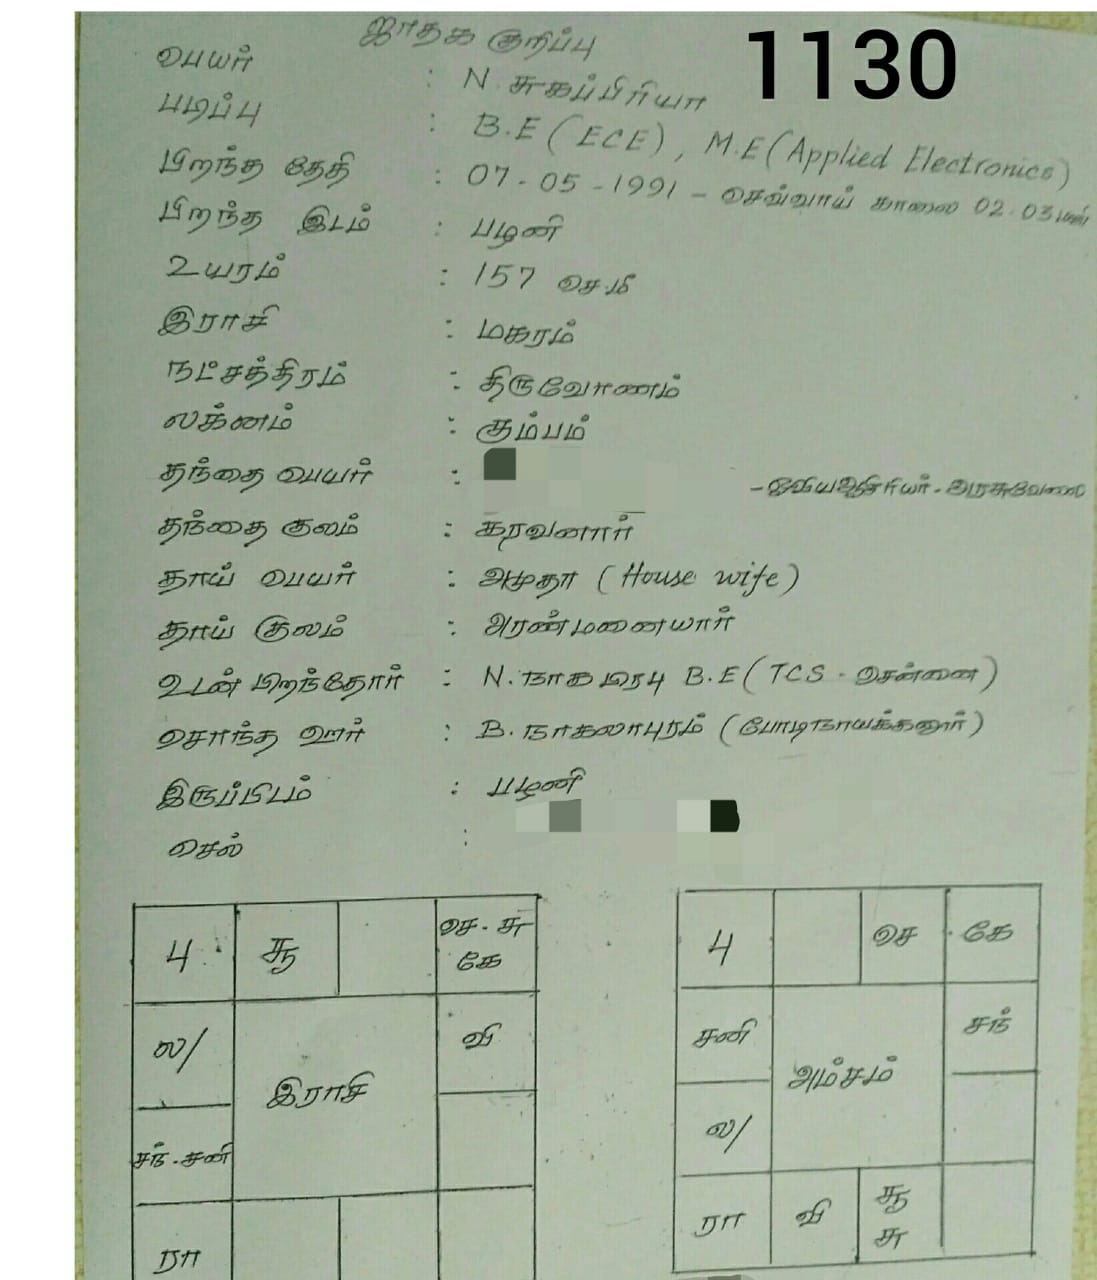 ஜாதக குறிப்பு
1130
பெயர் : N. சுகப்பிரியா
படிப்பு : B.E (ECE), M.E (Applied Electronics)
பிறந்த தேதி : 07-05-1991 - செவ்வாய் காலை 02.03 மணி
பிறந்த இடம் : பழனி
உயரம் : 157 செ.மீ
இராசி : மகரம்
நட்சத்திரம் : திருவோணம்
லக்னம் : கும்பம்
தந்தை பெயர் : - ஓவியஆசிரியர் - அரசுவேலை
தந்தை குலம் : கரவனார்
தாய் பெயர் : அமுதா (House wife)
தாய் குலம் : அரண்மனையார்
உடன் பிறந்தோர் : N. நாக B.E (TCS - சென்னை)
சொந்த ஊர் : B. நாகலாபுரம் (போடிநாயக்கனூர்)
இருப்பிடம் : பழனி
செல் :
பு சூ செ. சு
கே
ல/ வி
இராசி
சந். சனி
ரா
பு செ கே
சனி சந்
அம்சம்
ல/
ரா வி சூ
சு